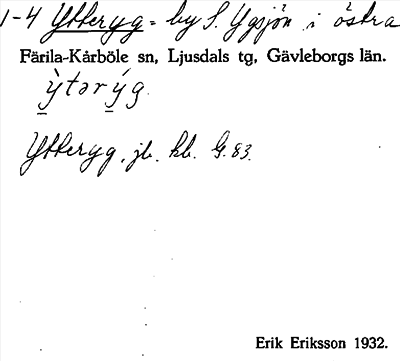 1-4 Ytteryg = by S. Ygsjön i östra
Färila-Kårböle sn, Ljusdals tg, Gävleborgs län.
ỳtərýg.
Ytteryg, jb. kb. G. 83.
Erik Eriksson 1932.